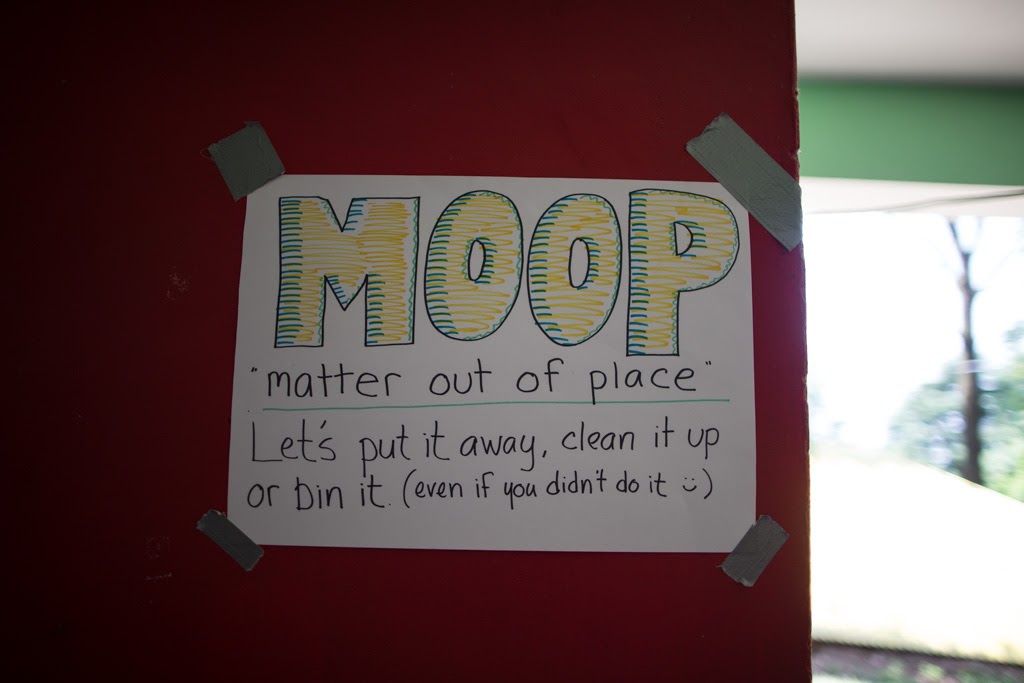 MOOP
"matter out of place"
Let's put it away, clean it up
or bin it. (even if you didn't do it :))